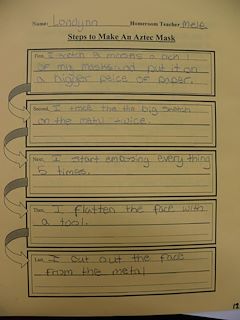 Name: Londynn Homeroom Teacher Mele
Steps to Make An Aztec Mask
First, I sketch 3
of my mask and put it on
a bigger peice of paper.
Second, I trace the big sketch
on the metal twice.
Next, I start embossing every thing
5 times.
Then, I flatten the face with
a tool.
Last, I cut out the face
from the metal